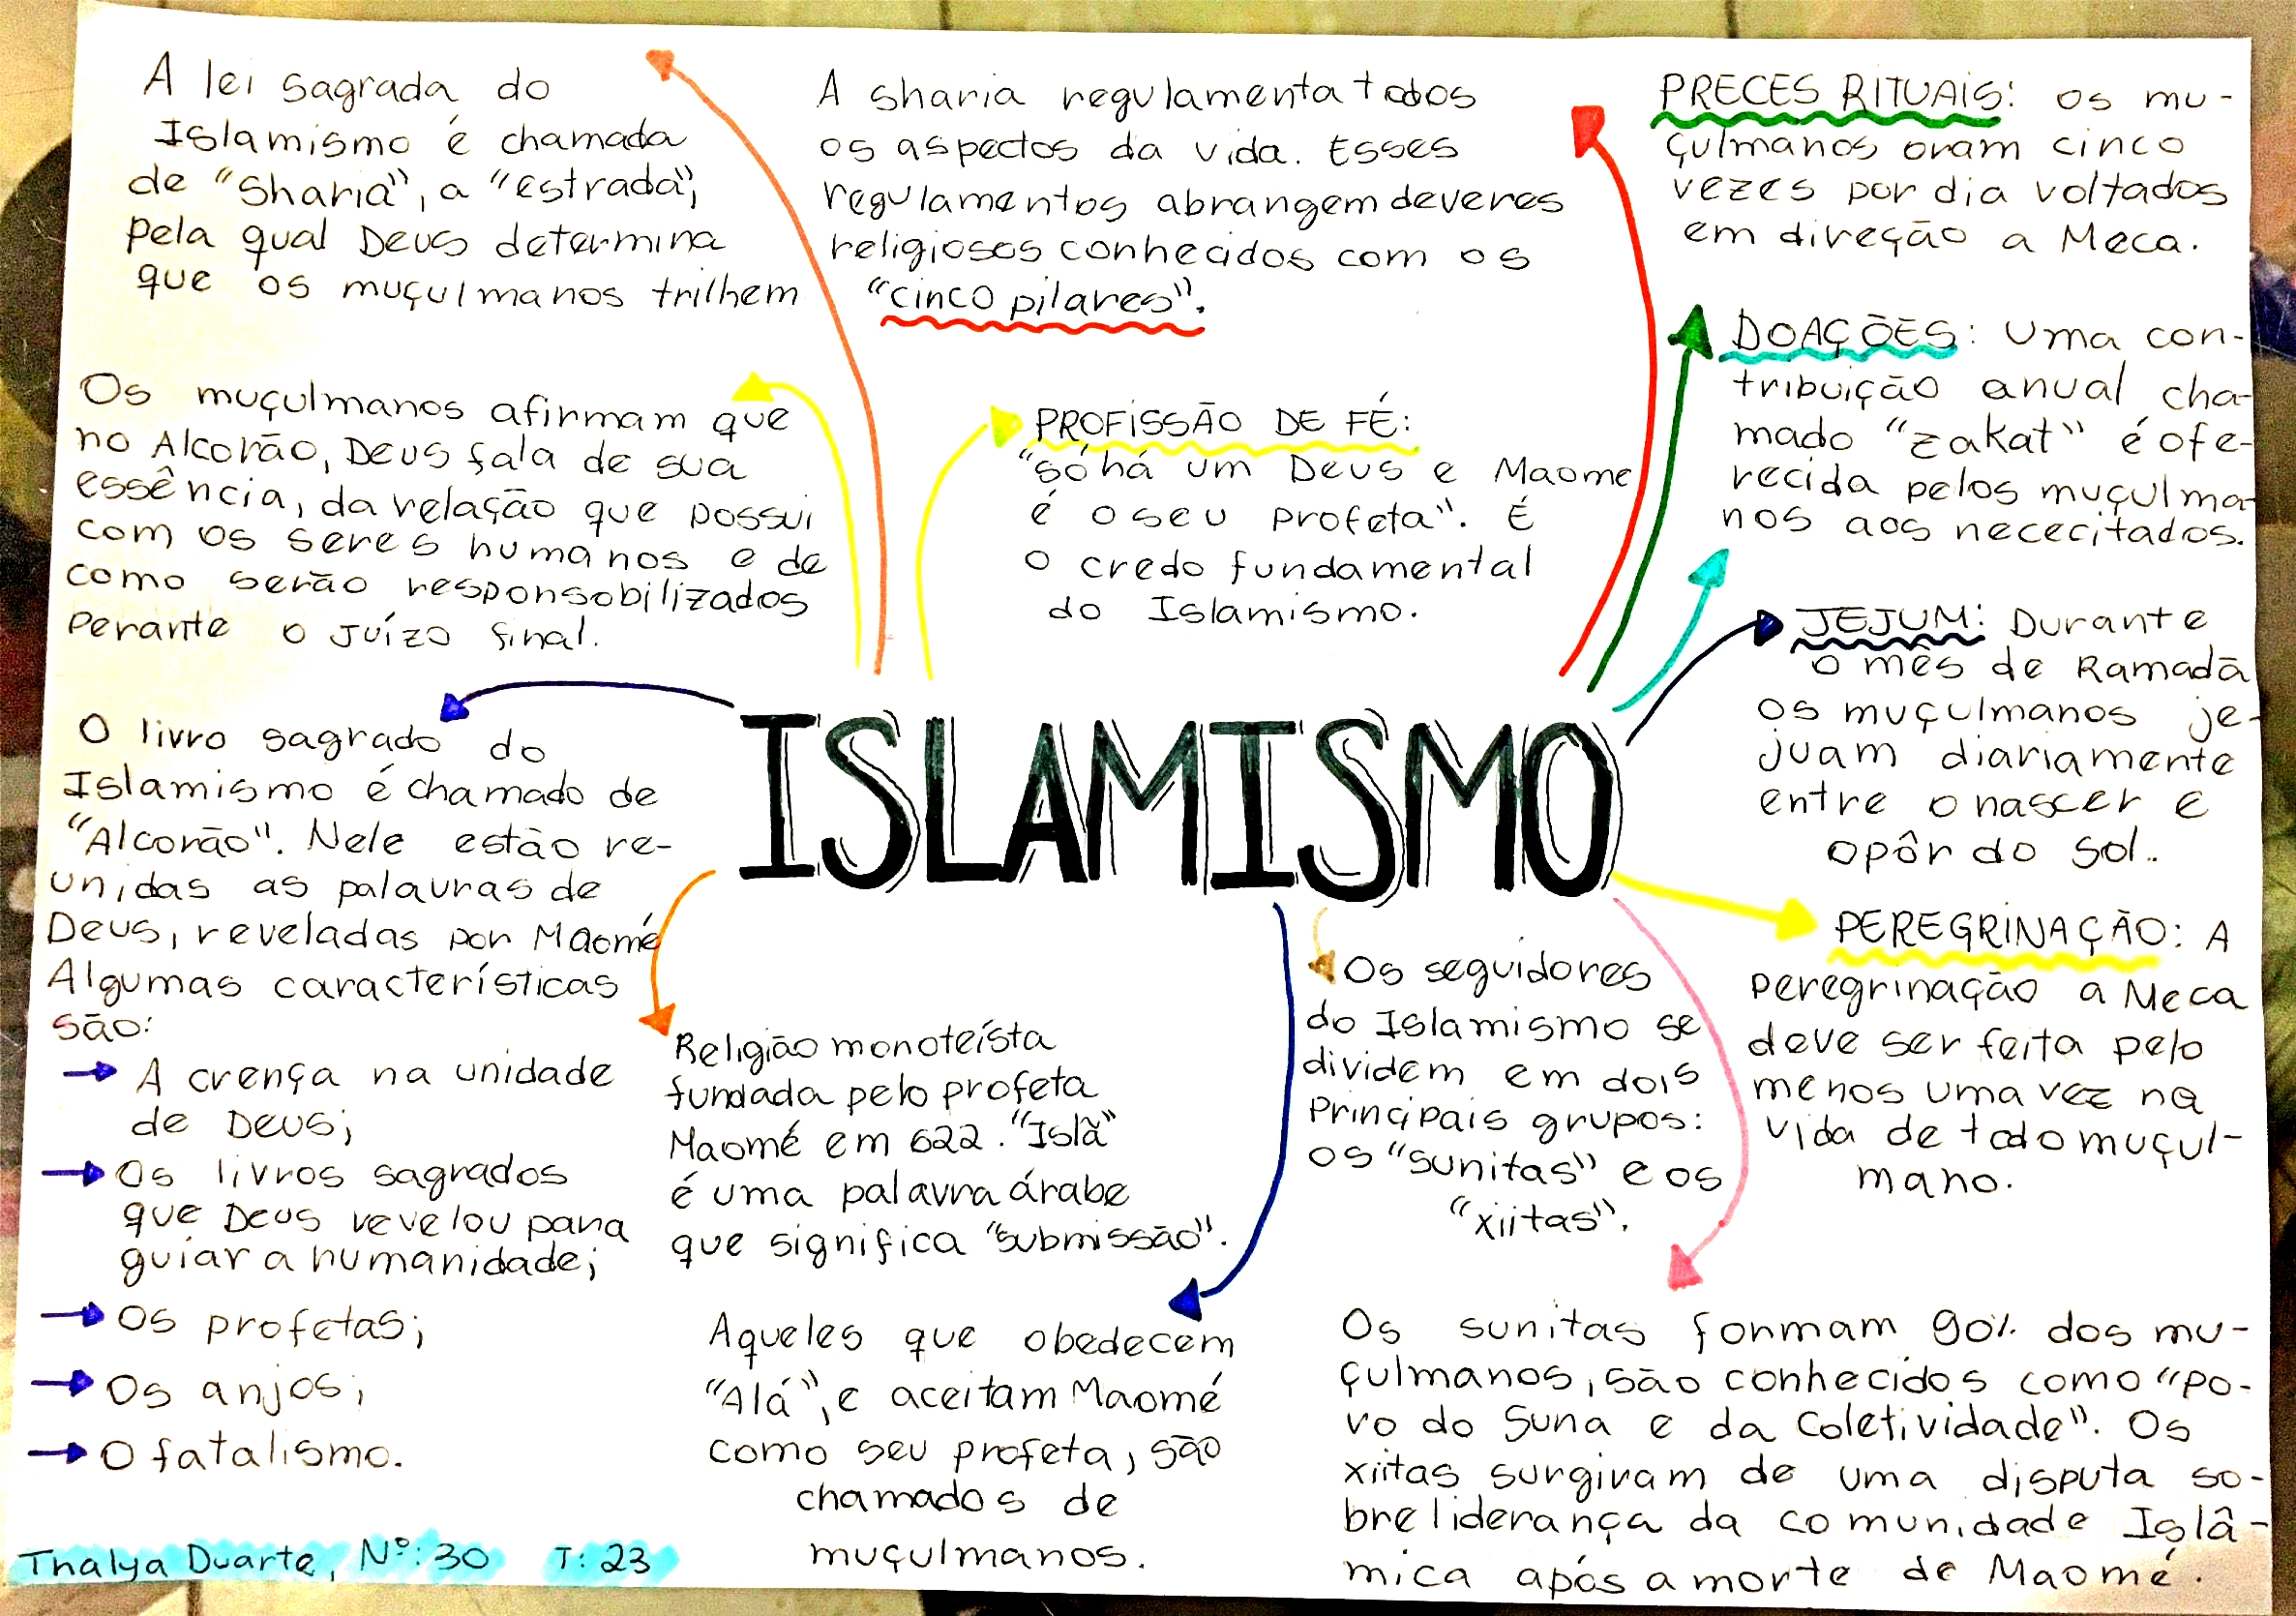 A lei sagrada do
Islamismo é chamada
de "Sharia", a "estrada",
pela qual Deus determina
que os muçulmanos trilhem
A sharia regulamenta todos
os aspectos da vida. Esses
regulamentos abrangem deveres
religiosos conhecidos com os
"cinco pilares".
PRECES RITUAIS: os mu-
çulmanos oram cinco
vezes por dia voltados
em direção a Meca.
DOAÇÕES: Uma con-
tribuição anual cha-
mado "zakat" é ofe-
recida pelos muçulma-
nos aos nececitados.
Os muçulmanos afirmam que
no Alcorão, Deus fala de sua
essência, da relação que possui
com os seres humanos e de
como serão responsobilizados
Perante o Juízo final.
PROFISSÃO DE FÉ:
"só há um Deus e Maome
é o seu profeta". É
o credo fundamental
do Islamismo.
JEJUM: Durante
o mês de Ramadã
os muçulmanos je-
juam diariamente
entre o nascer e
opôr do sol.
O livro sagrado do
Islamismo é chamado de
"Alcorão". Nele estão re-
unidas as palavras de
Deus, reveladas por Maomé
Algumas características
são:
A crença na unidade
de Deus;
Os livros sagrados
que Deus revelou para
guiar a humanidade;
Os profetas;
Os anjos;
O fatalismo.
ISLAMISMO
PEREGRINAÇÃO: A
peregrinação a Meca
deve ser feita pelo
menos uma vez na
vida de todo muçul-
mano.
Religião monoteísta
fundada pelo profeta
Maomé em 622. "Islã"
é uma palavra árabe
que significa "submissão".
Os seguidores
do Islamismo se
dividem em dois
Principais grupos:
os "sunitas" e os
"xiitas".
Aqueles que obedecem
"Alá", e aceitam Maomé
como seu profeta, são
chamados de
muçulmanos.
Os sunitas formam 90% dos mu-
çulmanos, são conhecidos como "po-
vo do Suna e da coletividade". Os
xiitas surgiram de uma disputa so-
bre liderança da comunidade Islâ-
mica após a morte de Maomé.
Thalya Duarte, Nº: 30 T: 23